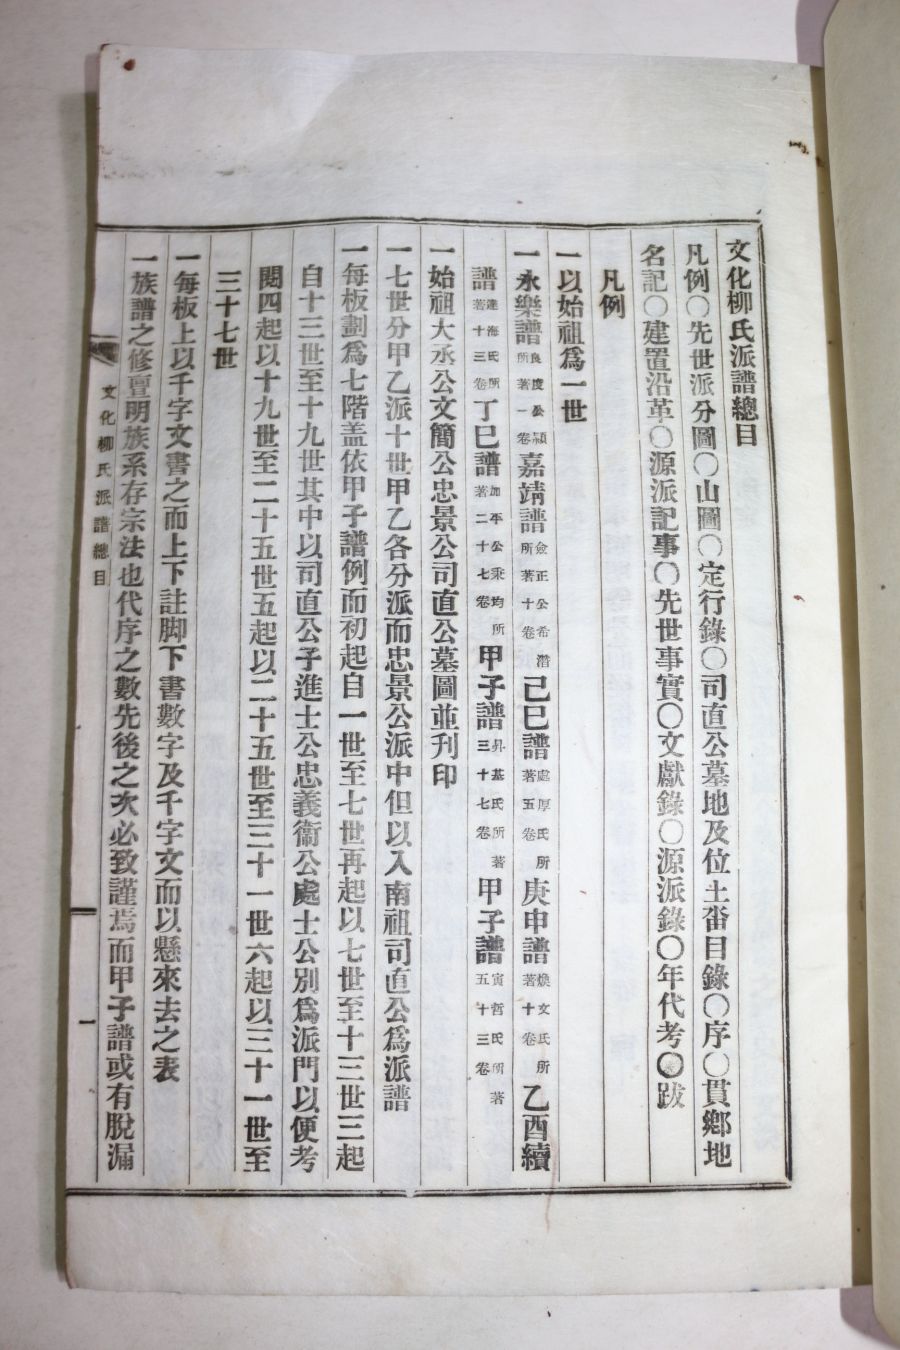 文化柳氏派譜總目
凡例○先世派分圖○山圖○定行錄○司直公墓地及位土畓目錄○序○貫鄉地
名記○建置沿革○源派記事○先世事實○文獻錄○源派錄○年代考○跋
凡例
一以始祖爲一世
一永樂譜良度公穎所著一卷嘉靖譜僉正公希潛所著十卷己巳譜處厚氏所著五卷庚申譜煥文氏所著十卷乙酉續
譜達海氏所著十三卷丁巳譜加平公秉均所著二十七卷甲子譜昇基氏所著三十七卷甲子譜寅哲氏所著五十三卷
一始祖大丞公文簡公忠景公司直公墓圖並刊印
一七世分甲乙派十世甲乙各分派而忠景公派中但以入南祖司直公爲派譜
一每板劃爲七階盖依甲子譜例而初起自一世至七世再起以七世至十三世三起
自十三世至十九世其中以司直公子進士公忠義衞公處士公別爲派門以便考
閱四起以十九世至二十五世五起以二十五世至三十一世六起以三十一世至
三十七世
一每板上以千字文書之而上下註脚下書數字及千字文而以懸來去之表
一族譜之修亶明族系存宗法也代序之數先後之次必致謹焉而甲子譜或有脫漏
文化柳氏派譜總目
一